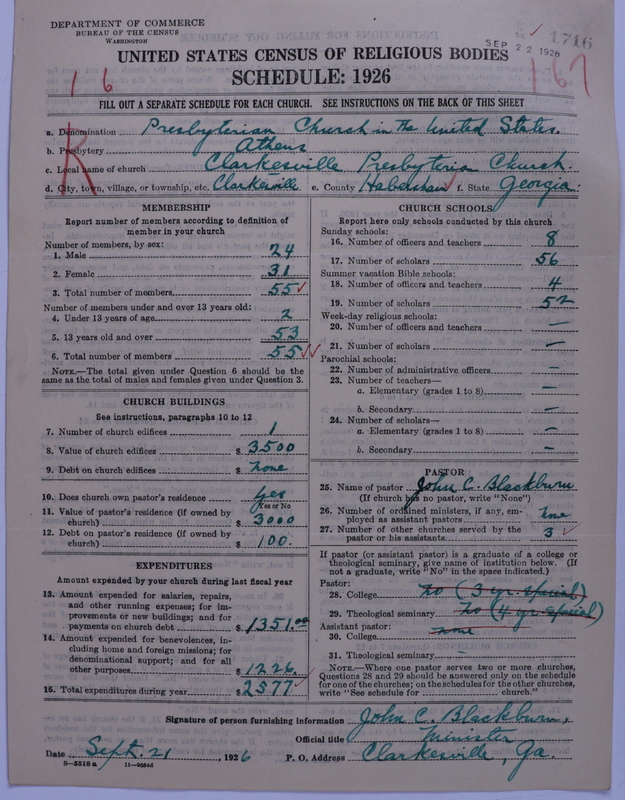 DEPARTMENT OF COMMERCE
BUREAU OF THE CENSUS
WASHINGTON
SEP 22 1926
1716
UNITED STATES CENSUS OF RELIGIOUS BODIES
SCHEDULE: 1926
1 6
167
FILL OUT A SEPARATE SCHEDULE FOR EACH CHURCH. SEE INSTRUCTIONS ON THE BACK OF THIS SHEET
R
a. Denomination Presbyterian Church in the United States.
b. Presbytery Athens
c. Local name of church Clarkesville Presbyterian Church.
d. City, town, village, or township, etc. Clarkesville e. County Habersham f. State Georgia.
MEMBERSHIP
Report number of members according to definition of member in your church
Number of members, by sex:
1. Male 24
2. Female 31
3. Total number of members 55 ✓
Number of members under and over 13 years old:
4. Under 13 years of age 2
5. 13 years old and over 53
6. Total number of members 55 ✓✓
NOTE.—The total given under Question 6 should be
same as the total of males and females given under Question 3.
CHURCH BUILDINGS
See instructions, paragraphs 10 to 12
7. Number of church edifices 1
8. Value of church edifices $ 3500
9. Debt on church edifices $ none
10. Does church own pastor's residence yes
Yes or No
11. Value of pastor's residence (if owned by
church) $ 3000
12. Debt on pastor's residence (if owned by
church) $ 100.
EXPENDITURES
Amount expended by your church during last fiscal year
13. Amount expended for salaries, repairs,
and other running expenses; for im-
provements or new buildings; and for
payments on church debt $ 1351.00
14. Amount expended for benevolences, in-
cluding home and foreign missions; for
denominational support; and for all
other purposes $ 1226.
15. Total expenditures during year $ 2577 ✓
CHURCH SCHOOLS
Report here only schools conducted by this church
Sunday schools:
16. Number of officers and teachers 8
17. Number of scholars 56
Summer vacation Bible schools:
18. Number of officers and teachers 4
19. Number of scholars 52
Week-day religious schools:
20. Number of officers and teachers —
21. Number of scholars —
Parochial schools:
22. Number of administrative officers —
23. Number of teachers—
a. Elementary (grades 1 to 8) —
b. Secondary —
24. Number of scholars—
a. Elementary (grades 1 to 8) —
b. Secondary —
PASTOR
25. Name of pastor John C. Blackburn
(If church has no pastor, write "None")
26. Number of ordained ministers, if any, em-
ployed as assistant pastors none
27. Number of other churches served by the
pastor or his assistants 3 ✓
If pastor (or assistant pastor) is a graduate of a college or
theological seminary, give name of institution below. (If
not a graduate, write "No" in the space indicated.)
Pastor:
28. College no (3 yr. special)
29. Theological seminary no (4 yr. special)
Assistant pastor:
30. College none
31. Theological seminary —
NOTE.—Where one pastor serves two or more churches,
Questions 28 and 29 should be answered only on the schedule
for one of the churches; on the schedules for the other churches,
write "See schedule for church."
Signature of person furnishing information John C. Blackburn,
Official title Minister
Date Sept. 21, 1926 P. O. Address Clarkesville, Ga.
8-5518 a